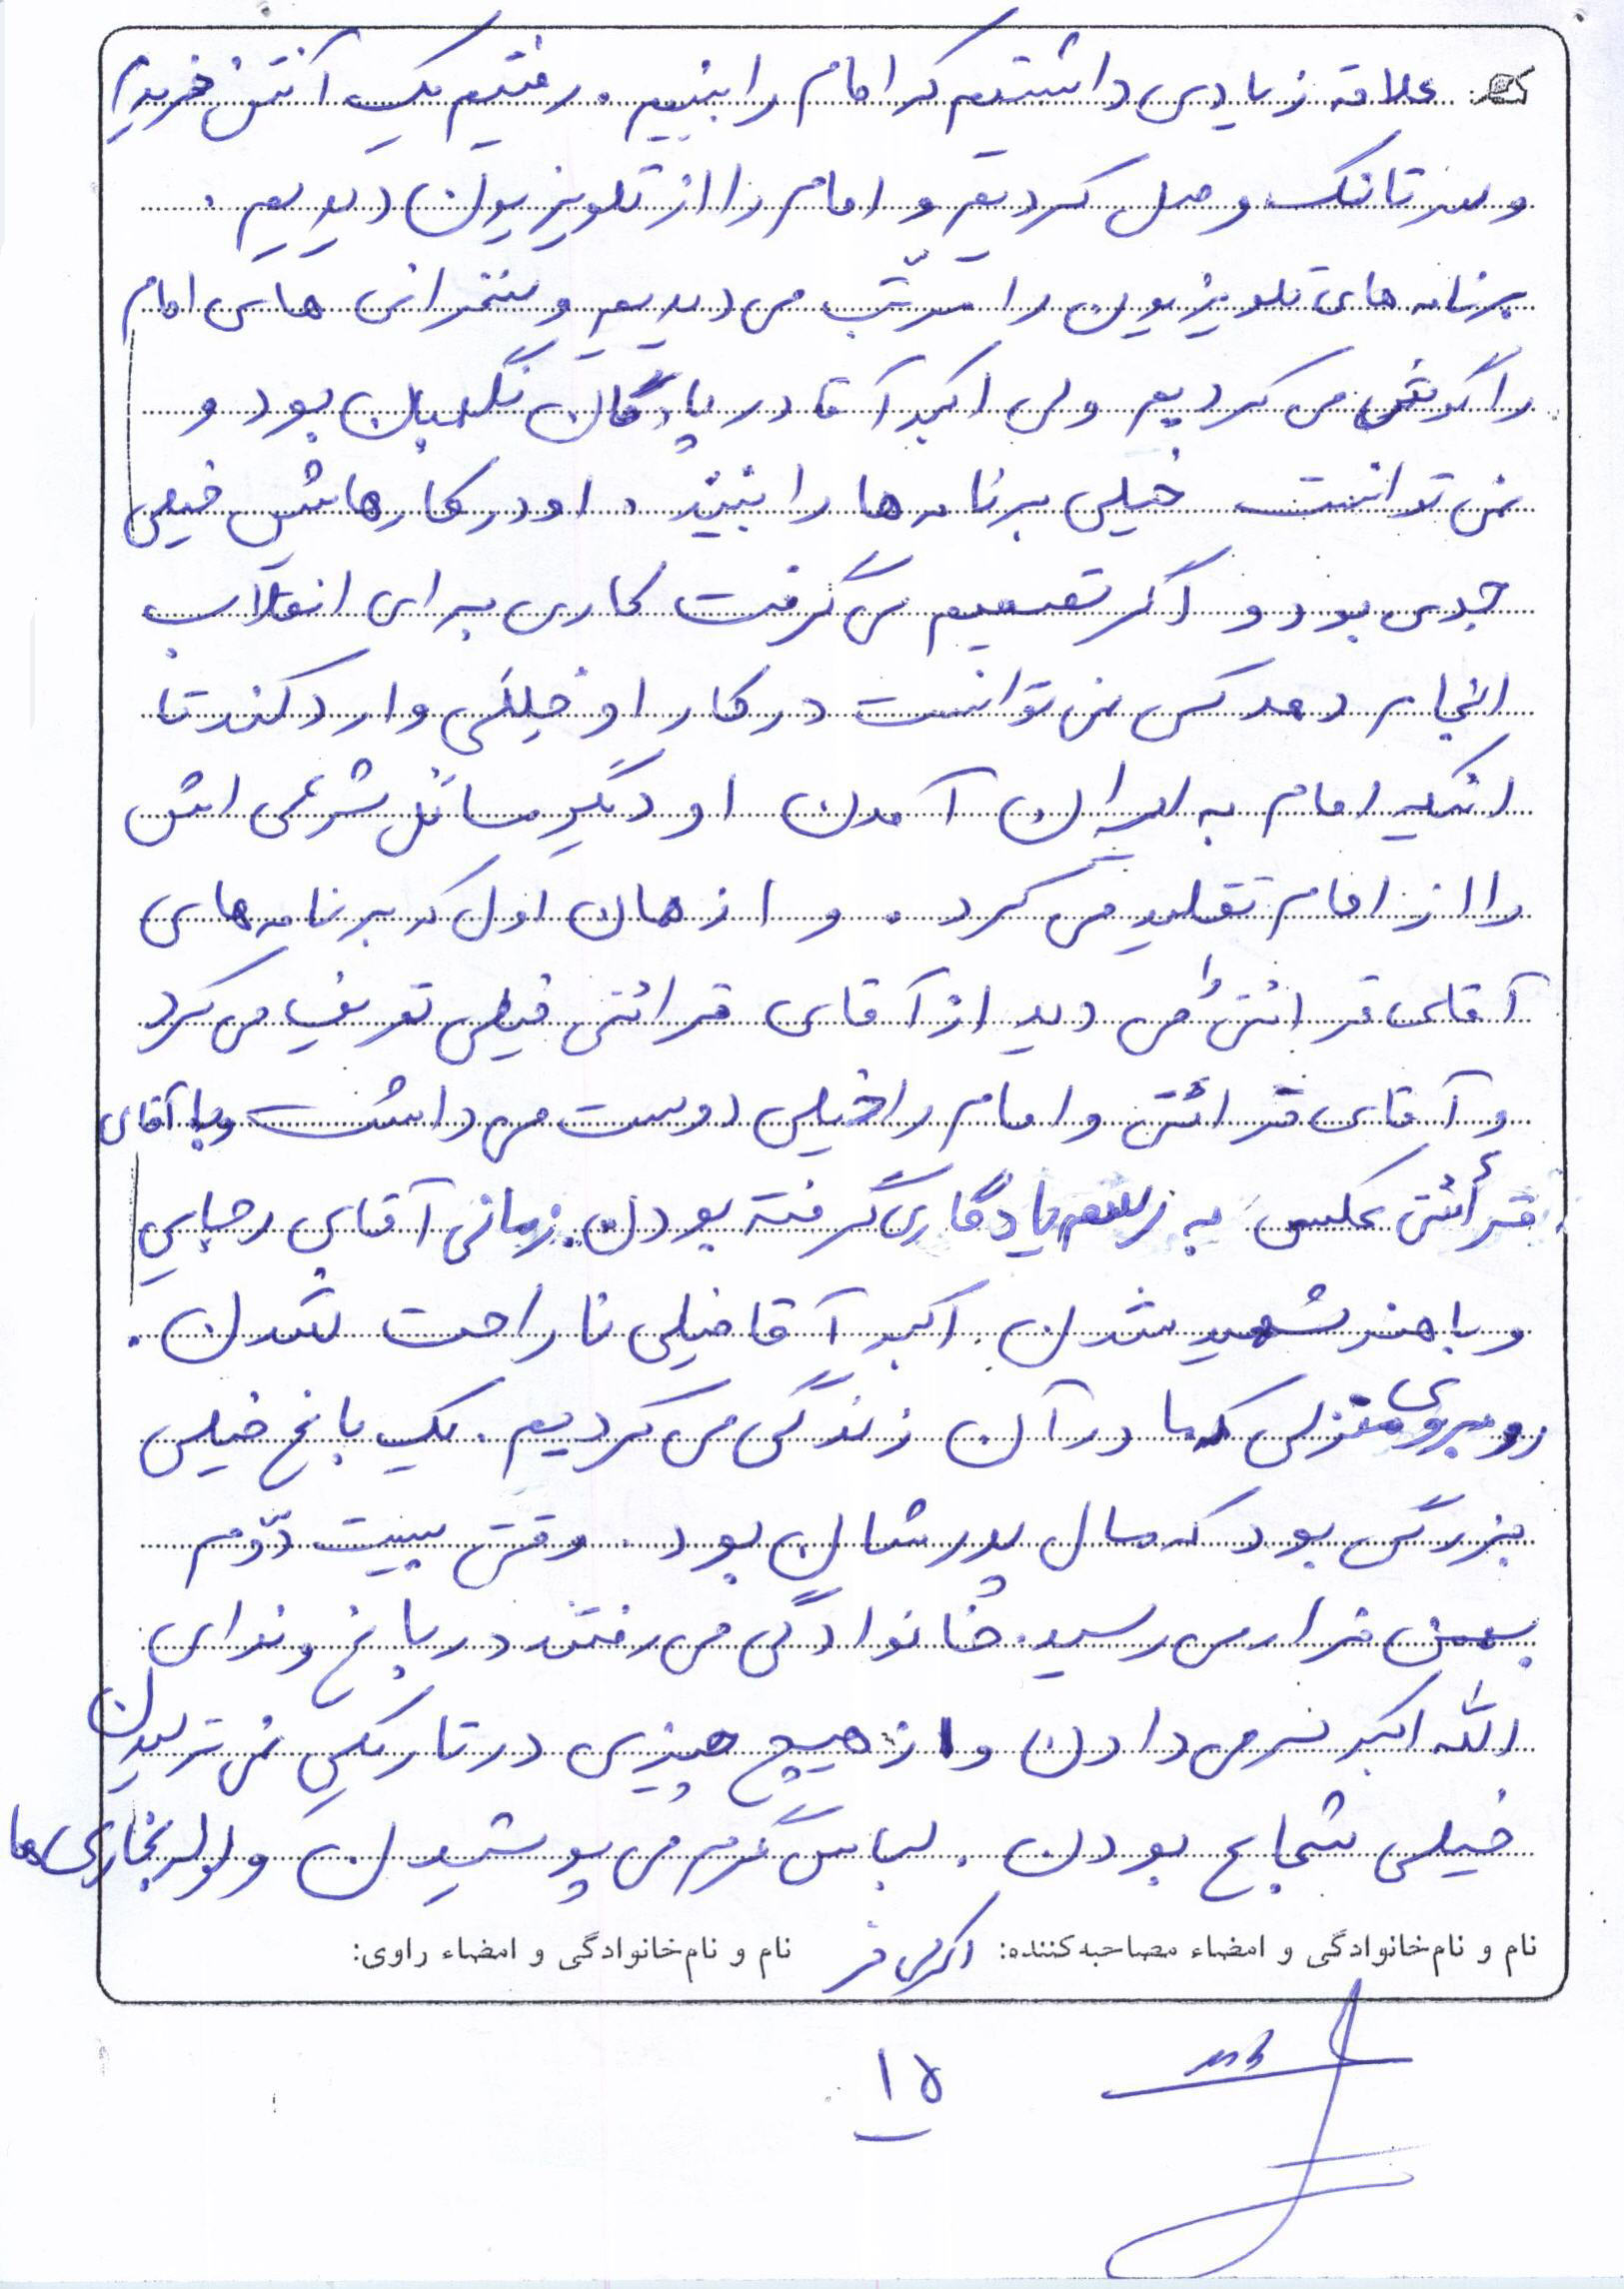 علاقه زیادی داشتیم که امام را ببینیم. رفتیم یک آنتن خریدیم
و سر تانک وصل کردیم و امام را از تلویزیون دیدیم.
برنامه های تلویزیون را مرتّب می دیدیم و سخنرانی های امام
را گوش می کردیم ولی اکبر آقا در پادگان نگهبان بود و
نمی توانست خیلی برنامه ها را ببیند. او در کارهایش خیلی
جدی بود و اگر تصمیم می گرفت کاری برای انقلاب
انجام دهد کسی نمی توانست در کار او خللی وارد کند تا
اینکه امام به ایران آمدن او دیگر مسائل شرعی اش
را از امام تقلید می کرد. و از همان اول که برنامه های
آقای قرائتی را می دید از آقای قرائتی خیلی تعریف می کرد
و آقای قرائتی و امام را خیلی دوست می داشت و با آقای
قرائتی عکس به رسم یادگاری گرفته بودن. زمانی آقای رجایی
و باهنر شهید شدن. اکبر آقا خیلی ناراحت شدن.
روبروی منزلی که ما در آن زندگی می کردیم. یک باغ خیلی
بزرگی بود که مال پدرشان بود. وقتی بیست دوّم
بهمن فرا می رسید. خانوادگی می رفتند در باغ و ندای
الله اکبر سر می دادن و از هیچ چیزی در تاریکی نمی ترسیدن
خیلی شجاع بودن. لباس گرم می پوشیدن و لوله بخاری ها
نام و نام خانوادگی و امضاء مصاحبه کننده: نام و نام خانوادگی و امضاء راوی:
۱۵